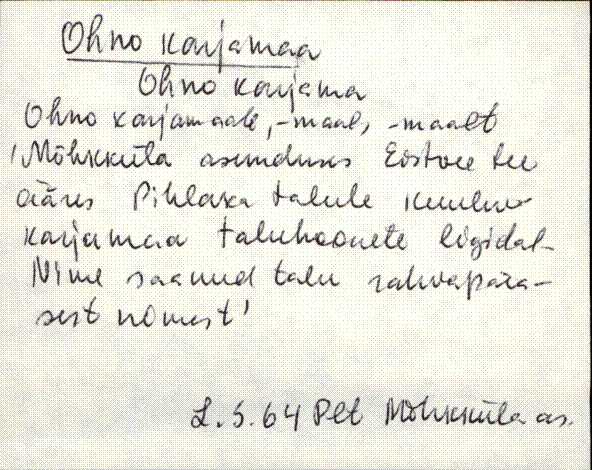 Ohno karjamaa
Ohno karjama
Ohno karjamaale, -maal, -maalt
'Mõhkküla asunduses Eistvee tee
ääres Pihlaka talule kuuluv
karjamaa taluhoonete ligidal.
Nime saanud talu rahvapära-
sest nimest'
L.S.64 Plt Mõhkküla as.